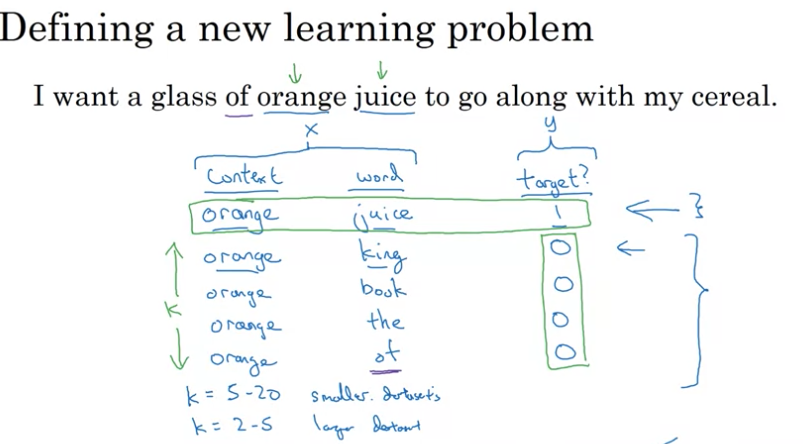 Defining a new learning problem
I want a glass of orange juice to go along with my cereal.
x y
Context word target?
orange juice 1
orange king 0
orange book 0
k orange the 0
orange of 0
k = 5-20 smaller datasets
k = 2-5 larger dataset